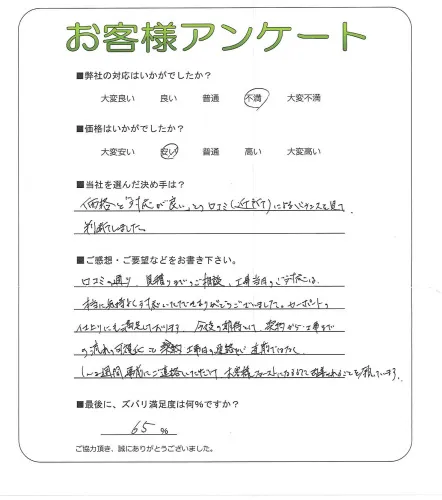 お客様アンケート
■弊社の対応はいかがでしたか？
大変良い 良い 普通 不満 大変不満
■価格はいかがでしたか？
大変安い 安い 普通 高い 大変高い
■当社を選んだ決め手は？
価格と「対応が良い」との口コミ(近所で)によるバランスを見て
判断しました。
■ご感想・ご要望などをお書き下さい。
口コミの通り、見積りからのご相談、工事当日のご対応は、
本当に気持ちよく対応いただきありがとうございました。カーポートの
仕上りにも満足しております。今後の期待として、契約から工事まで
の流れの可視化と契約工事日の連絡が直前ではなく、
1〜2週間事前にご連絡いただけ
■最後に、ズバリ満足度は何%ですか？
65 %
ご協力頂き、誠にありがとうございました。